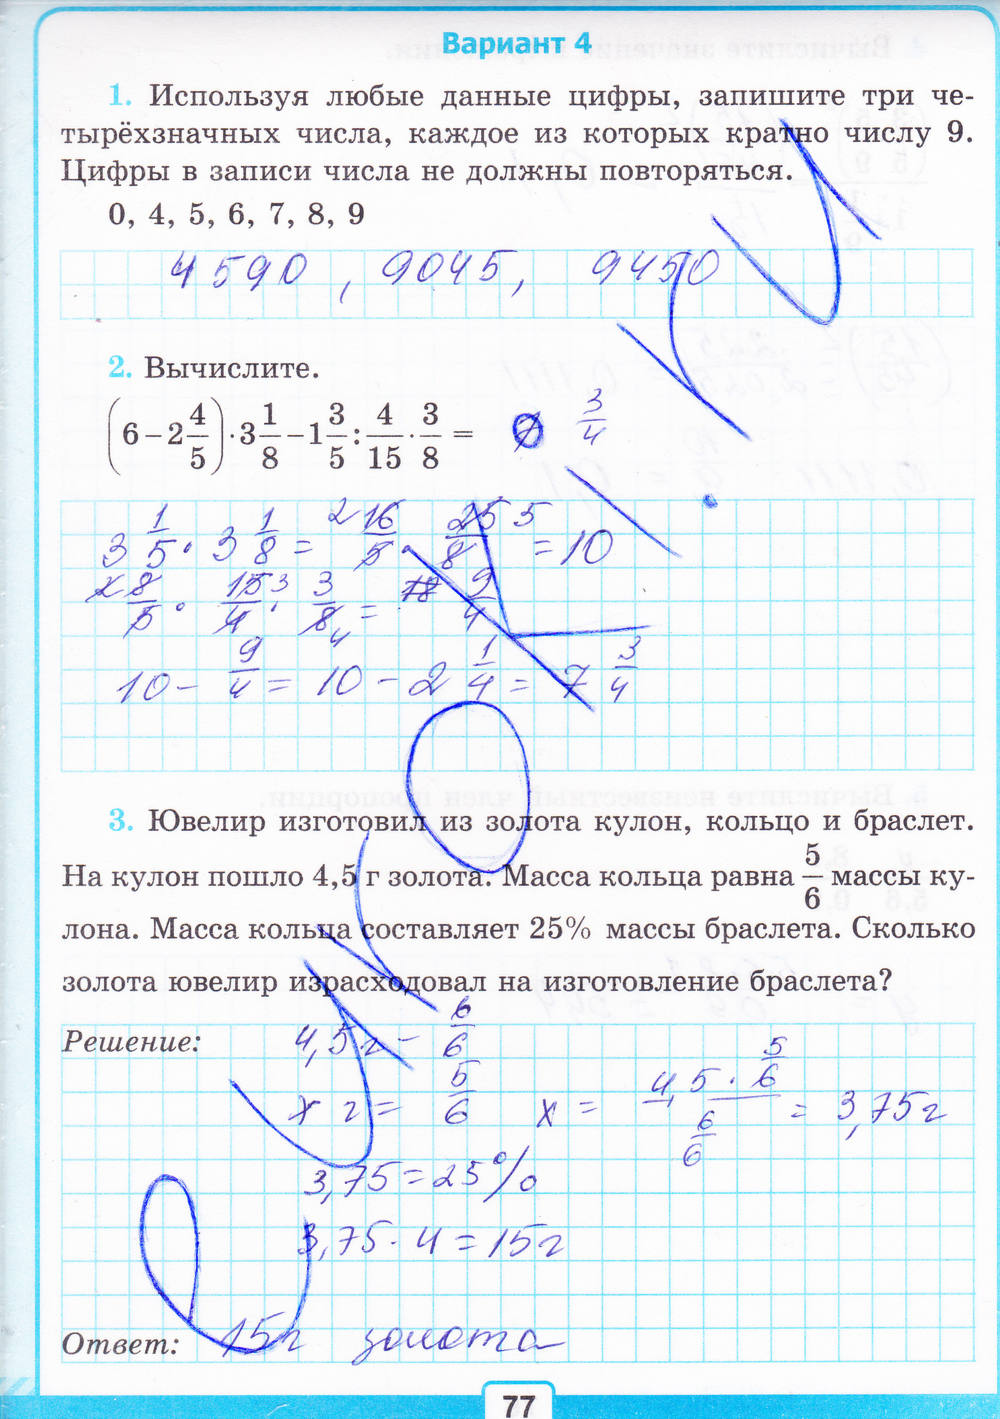 Вариант 4
1. Используя любые данные цифры, запишите три че-
тырёхзначных числа, каждое из которых кратно числу 9.
Цифры в записи числа не должны повторяться.
0, 4, 5, 6, 7, 8, 9
4590, 9045, 9450
2. Вычислите.
(6 − 2 4/5) · 3 1/8 − 1 3/5 : 4/15 · 3/8 = 7 3/4
3 1/5 · 3 1/8 = 2 16/5 · 25/8 5 = 10
2 8/5 · 15/4 3 · 3/8 4 = 9/4
10 − 9/4 = 10 − 2 1/4 = 7 3/4
3. Ювелир изготовил из золота кулон, кольцо и браслет.
На кулон пошло 4,5 г золота. Масса кольца равна 5/6 массы ку-
лона. Масса кольца составляет 25% массы браслета. Сколько
золота ювелир израсходовал на изготовление браслета?
Решение: 4,5 г − 6/6
x г = 5/6 x = 4,5 · 5/6 / 6/6 = 3,75 г
3,75 = 25%
3,75 · 4 = 15 г
Ответ: 15 г золота
77